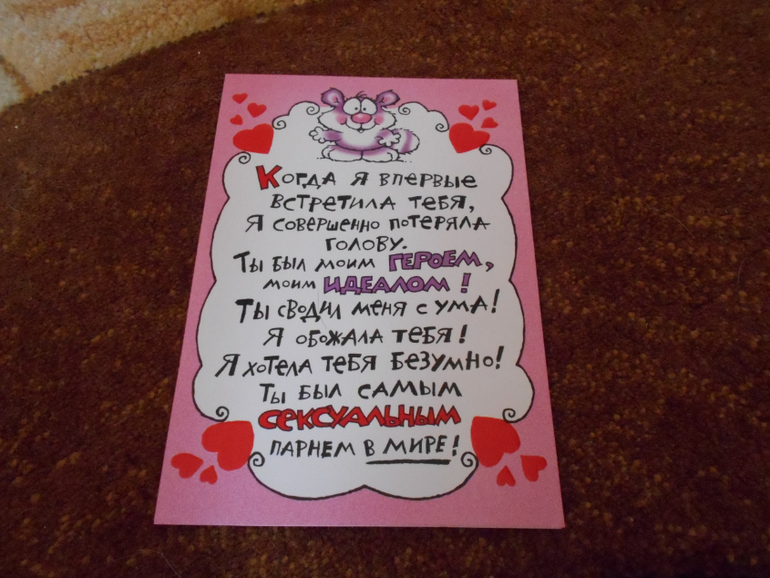 Когда я впервые
встретила тебя,
я совершенно потеряла
голову.
Ты был моим ГЕРОЕМ,
моим ИДЕАЛОМ!
Ты сводил меня с ума!
Я обожала тебя!
Я хотела тебя безумно!
Ты был самым
СЕКСУАЛЬНЫМ
парнем в мире!